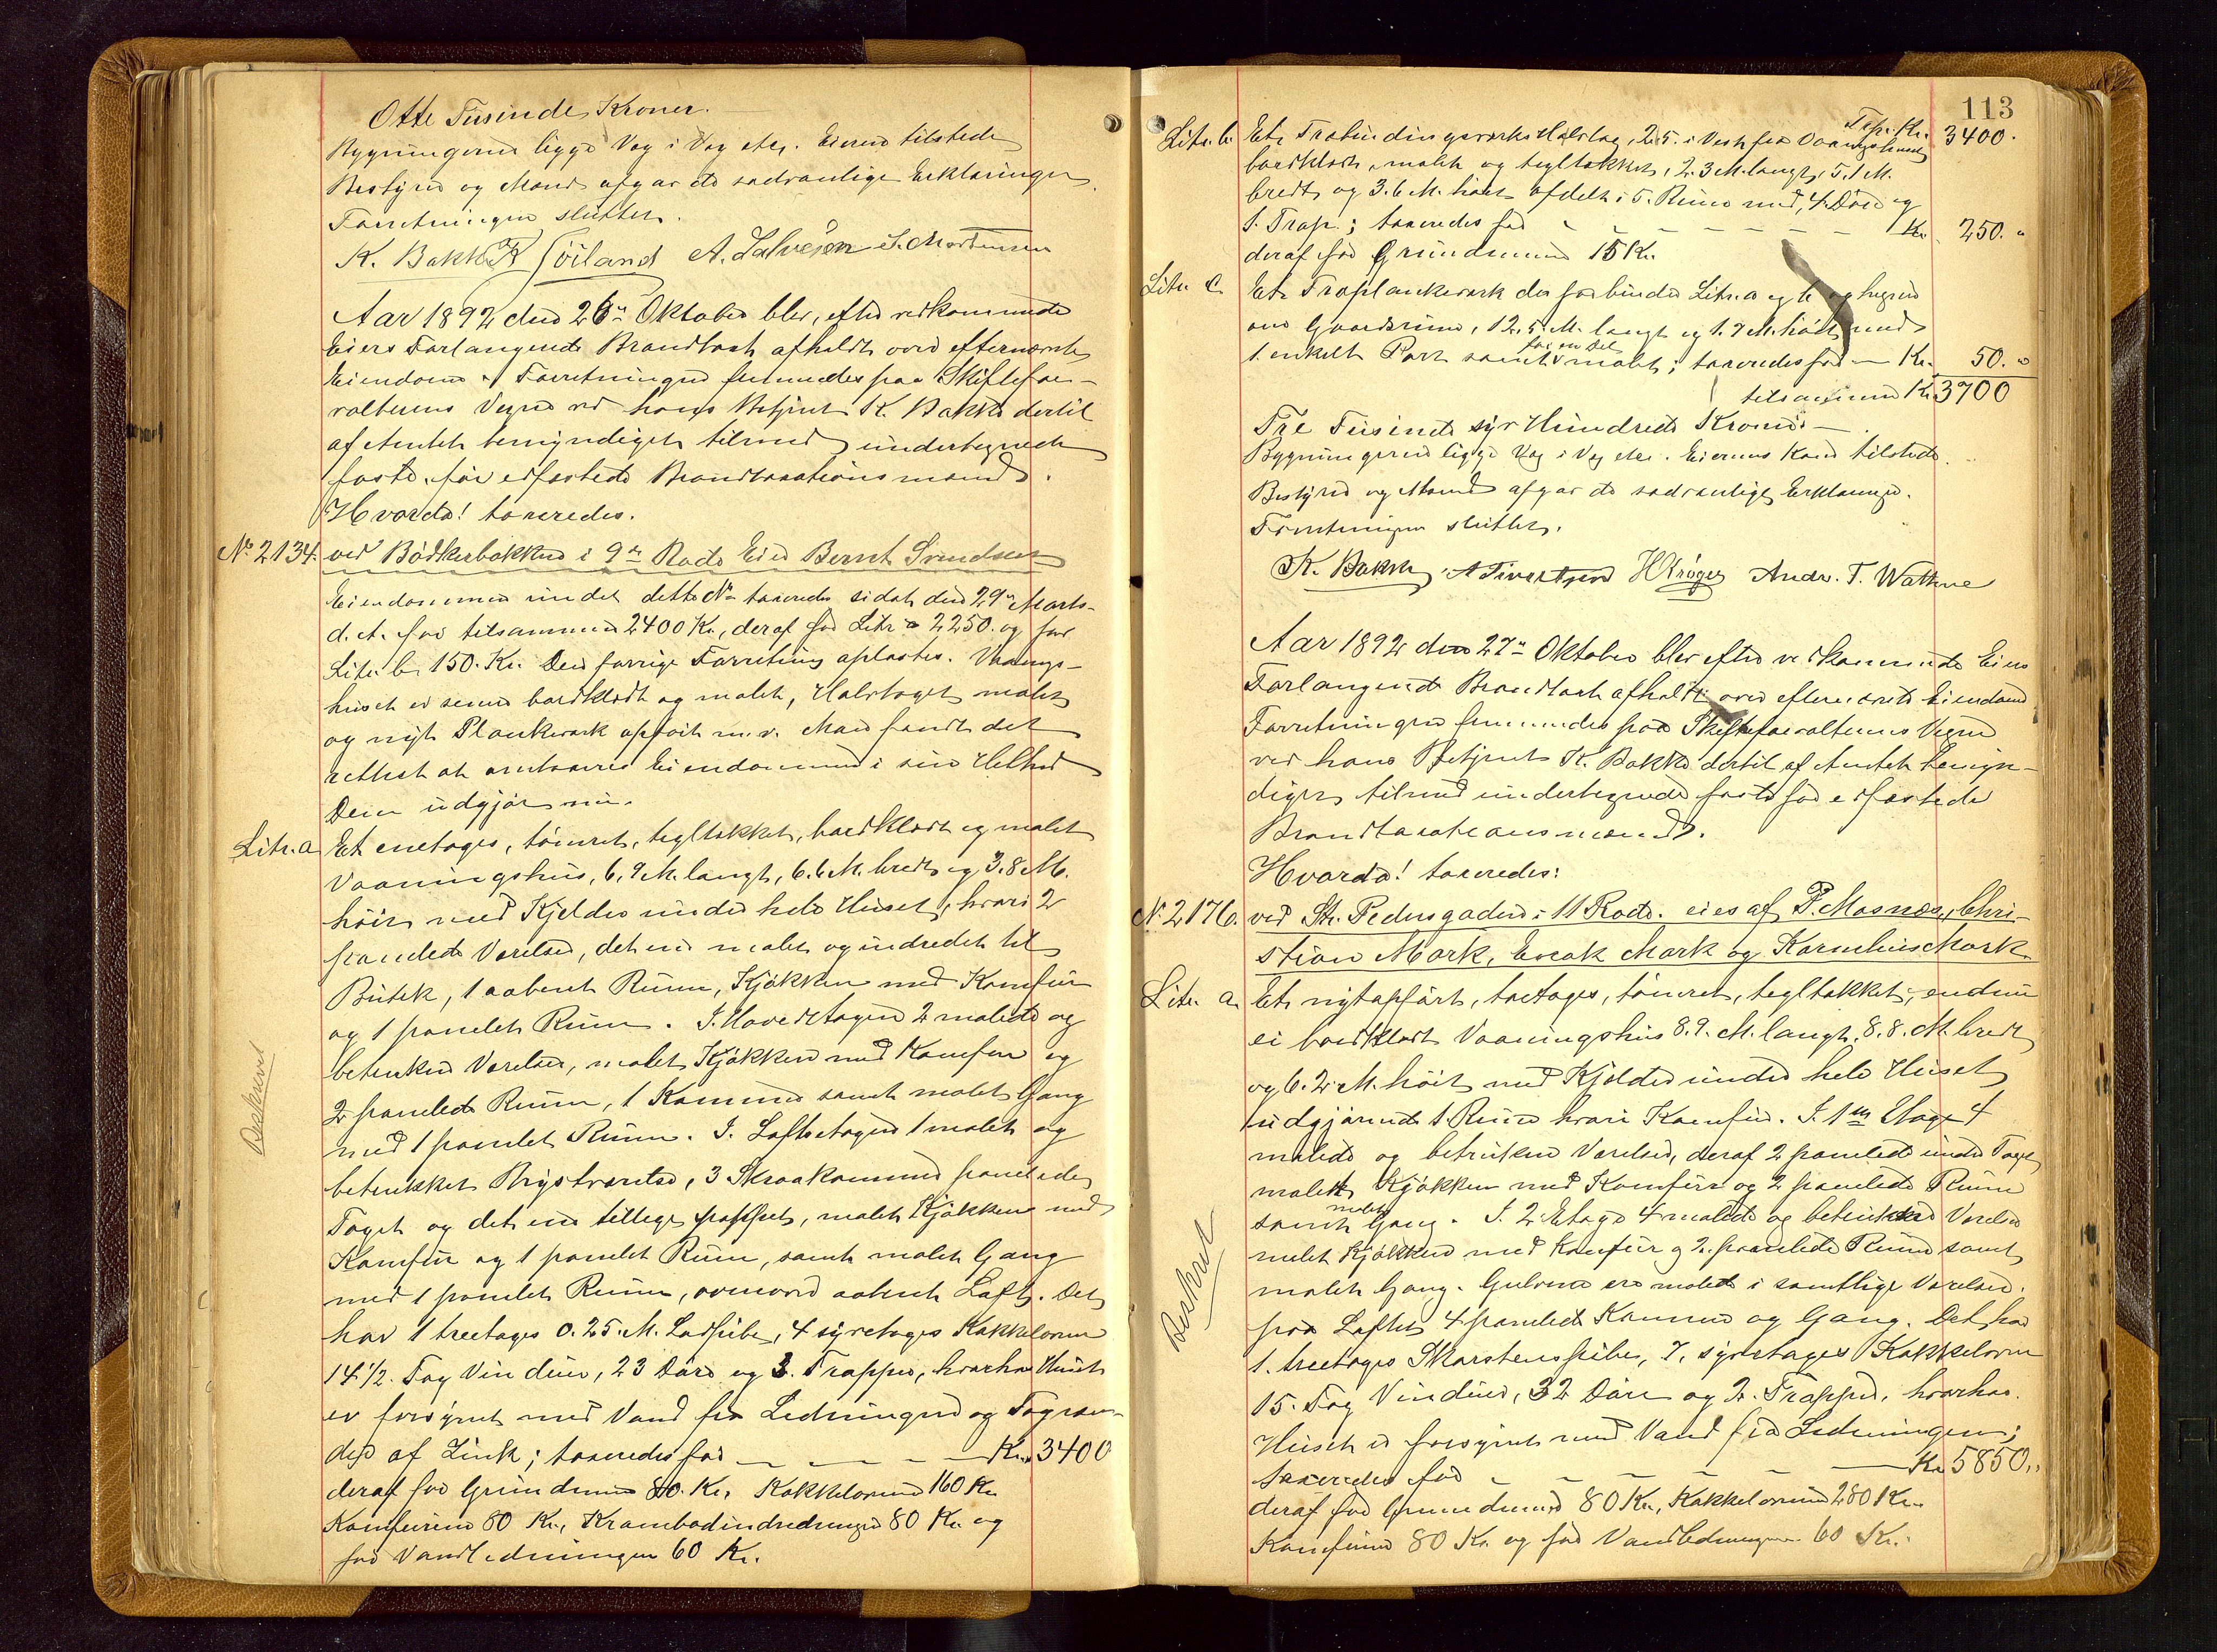 Otte Tusinde Kroner.
Bygningerne ligge Væg i Væg etc. Eieren tilstede
Bestyrer og Mænd afgav de sædvanlige Erklæringer.
Forretningen sluttet.
K. Bakke K Göiland A. Salvesen S. Mortensen
Aar 1892 den 26de Oktober blev, efter vedkommende
Eiers Forlangende Brandtaxt afholdt over efternævnte
Eiendom. Forretningen fremmedes paa Skiftefor-
valterens Vegne ved hans Betjent K. Bakke dertil
af Amtet bemyndiget tilmed undertegnede
faste, før edfæstede Brandtaxationsmænd.
Hvorda! taxeredes.
No 2134. ved Bödkerbakken i 9de Rode Eier Bernt Svendsen
Eiendommen under dette No taxeredes sidst den 29de Marts
d. A. for tilsammen 2400 Kr., deraf for Litr a 2250. og for
Litr. b. 150. Kr. Den forrige Forretning oplæstes. Vaanings-
huset er senere bordklædt og malet, Halvtaget malet
og nyt Plankeværk opført m. v. Man fandt det
rettest at omtaxere Eiendommen i sin Helhed
Den udgjör nu.
Litr. a Et enetages, tömret, tegltækket, bordklædt og malet
Vaaningshus, 6,9 M. langt, 6.6 M. bredt og 3.8 M.
höit med Kjelder under hele Huset, hvori 2
panelede Værelser, det ene malet og indredet til
Butik, 1 aabent Rum, Kjökken med Komfur
og 1 panelet Rum. I. Hovedetagen 2 malede og
betrukne Værelser, malet Kjökken med Komfur og
2 panelede Rum, 1 Kammer samt malet Gang
med 1 panelet Rum. I. Loftsetagen 1 malet og
betrukket Brystværelse, 3 Skraakammere panelede
Taget og det ene tillige pappet, malet Kjökken med
Komfur og 1 panelet Rum, samt malet Gang
med 1 panelet Rum, ovenover aabent Loft. Det
har 1 treetages 0.25. M. Ladpibe, 4 syvetages Kakkelovne
14 1/2. Fag Vinduer, 23 Döre og 3. Trapper, hvorhos Huset
er forsynet med Vand fra Ledningen og Tagren-
der af Zink; taxeredes for — — — Kr. 3400
deraf for Grundmur 80. Kr. Kakkelovnene 160 Kr
Komfurene 80 Kr, Kramboldindredningen 80 Kr og
for Vandledningen 60 Kr.
Beskrevet
113
Litr. b. Et Træbindingsværks Halvtag, 2.5. i Vest fra Vaaningshuset Trsp. Kr. 3400.
bordklædt, malet og tegltækket, 2.3 M. langt, 5.1 M.
bredt og 3.6 M. höit afdelt i 5. Rum med 4 Döre og
1. Trap.; taxeredes for — — — Kr. 250. "
deraf for Grundmuren 15 Kr.
Litr. c. Et Træplankeværk der forbinder Litr. a og b og hegner
om Gaardsrum, 12.5 M. langt og 1.9 M. höit med
1. enkelt Port samt for en Del malet; taxeredes for — Kr. 50. "
tilsammen Kr. 3700
Tre Tusinde syv Hundrede Kroner —
Bygningerne ligge Væg i Væg etc. Eierens Kone tilstede.
Bestyrer og Mænd afgav de sædvanlige Erklæringer.
Forretningen sluttet.
K. Bakke A Sivertsen H Kröger Andr. T. Wathne
Aar 1892 den 27de Oktober blev efter vedkommende Eiers
Forlangende Brandtaxt afholdt over efternævnte Eiendom
Forretningen fremmedes paa Skifteforvalterens Vegne
ved hans Betjent K. Bakke dertil af Amtet bemyn-
diget tilmed undertegnede faste før edfæstede
Brandtaxationsmænd.
Hvorda! taxeredes:
No 2176. ved St. Pedersgaden i 11 Rode. eies af P. Mosnæs, Chri-
stian Mørk, Enok Mørk og Kornelius Mørk
Litr. a. Et nytopført, toetages, tömret, tegltækket, endnu
ei bordklædt Vaaningshus 8.9. M. langt, 8.8. M. bredt
og 6.2 M. höit med Kjelder under hele Huset
udgjörende 1 Rum hvori Komfur. I. 1ste Etage 4
malede og betrukne Værelser, deraf 2 panelede under Taget
malet Kjökken med Komfur og 2 panelede Rum
samt malet Gang. I. 2. Etage 4 malede og betrukne Værelser
malet Kjökken med Komfur og 2. panelede Rum samt
malet Gang. Gulvene ere malede i samtlige Værelser.
paa Loftet 4 panelede Kammere og Gang. Det har
1. treetages Skorstenspibe, 7. syvetages Kakkelovne
15. Fag Vinduer, 32 Döre og 2. Trapper, hvorhos.
Huset er forsynet med Vand fra Ledningen;
taxeredes for — — — Kr 5850. "
deraf for Grundmuren 80 Kr., Kakkelovnene 280 Kr.
Komfurene 80 Kr. og for Vandledningen 60 Kr.
Beskrevet